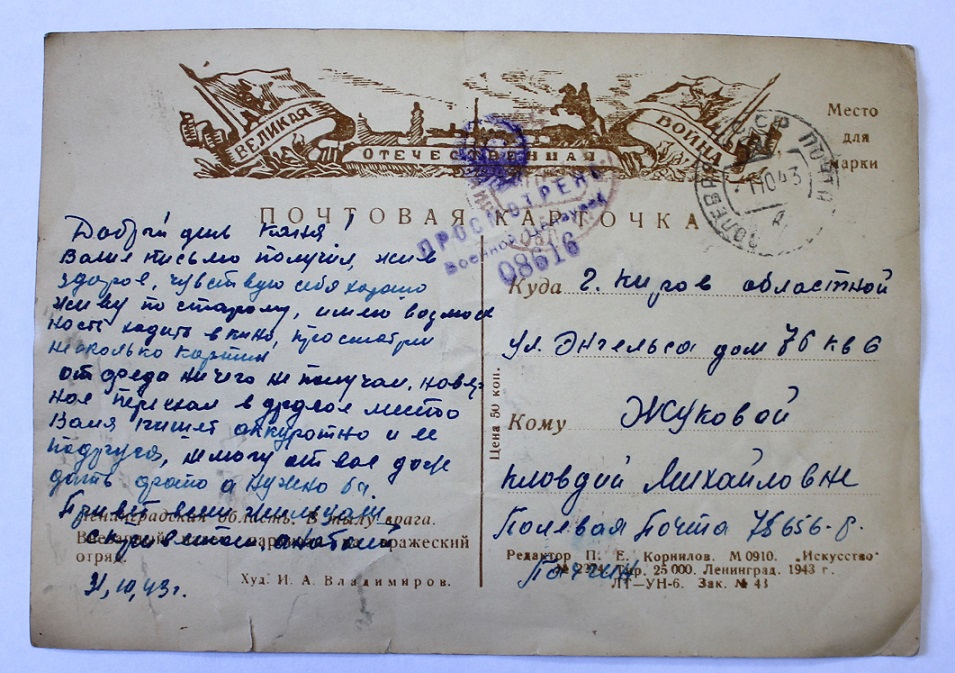 ВЕЛИКАЯ
ОТЕЧЕСТВЕННАЯ
ВОЙНА
Место
для
марки
ПОЧТОВАЯ КАРТОЧКА
ПРОСМОТРЕНО
Военной Цензурой
08616
Добрый день
Ваше письмо получил, жив
здоров, чувствую себя хорошо
живу по старому, имею возмож
ность ходить в кино, просмотрел
несколько картин
от деда ничего не получал, навер-
ное переехал в другое место
Валя пишет аккуратно и ее
подруга, не могу от вас дож
дать фото а нужно бы.
Привет всем
с приветом
31,10,43 г.
Ленинградская область. В тылу врага.
отряд.
Худ. И. А. Владимиров.
Цена 50 коп.
Куда г. Киров областной
ул. Энгельса дом 76 кв 6
Кому Жуковой
Клавдии Михайловне
Полевая Почта 78656-
Редактор П. Е. Корнилов. М 0910. „Искусство"
Тир. 25 000. Ленинград. 1943 г.
ЛТ—УН-6. Зак. № 43